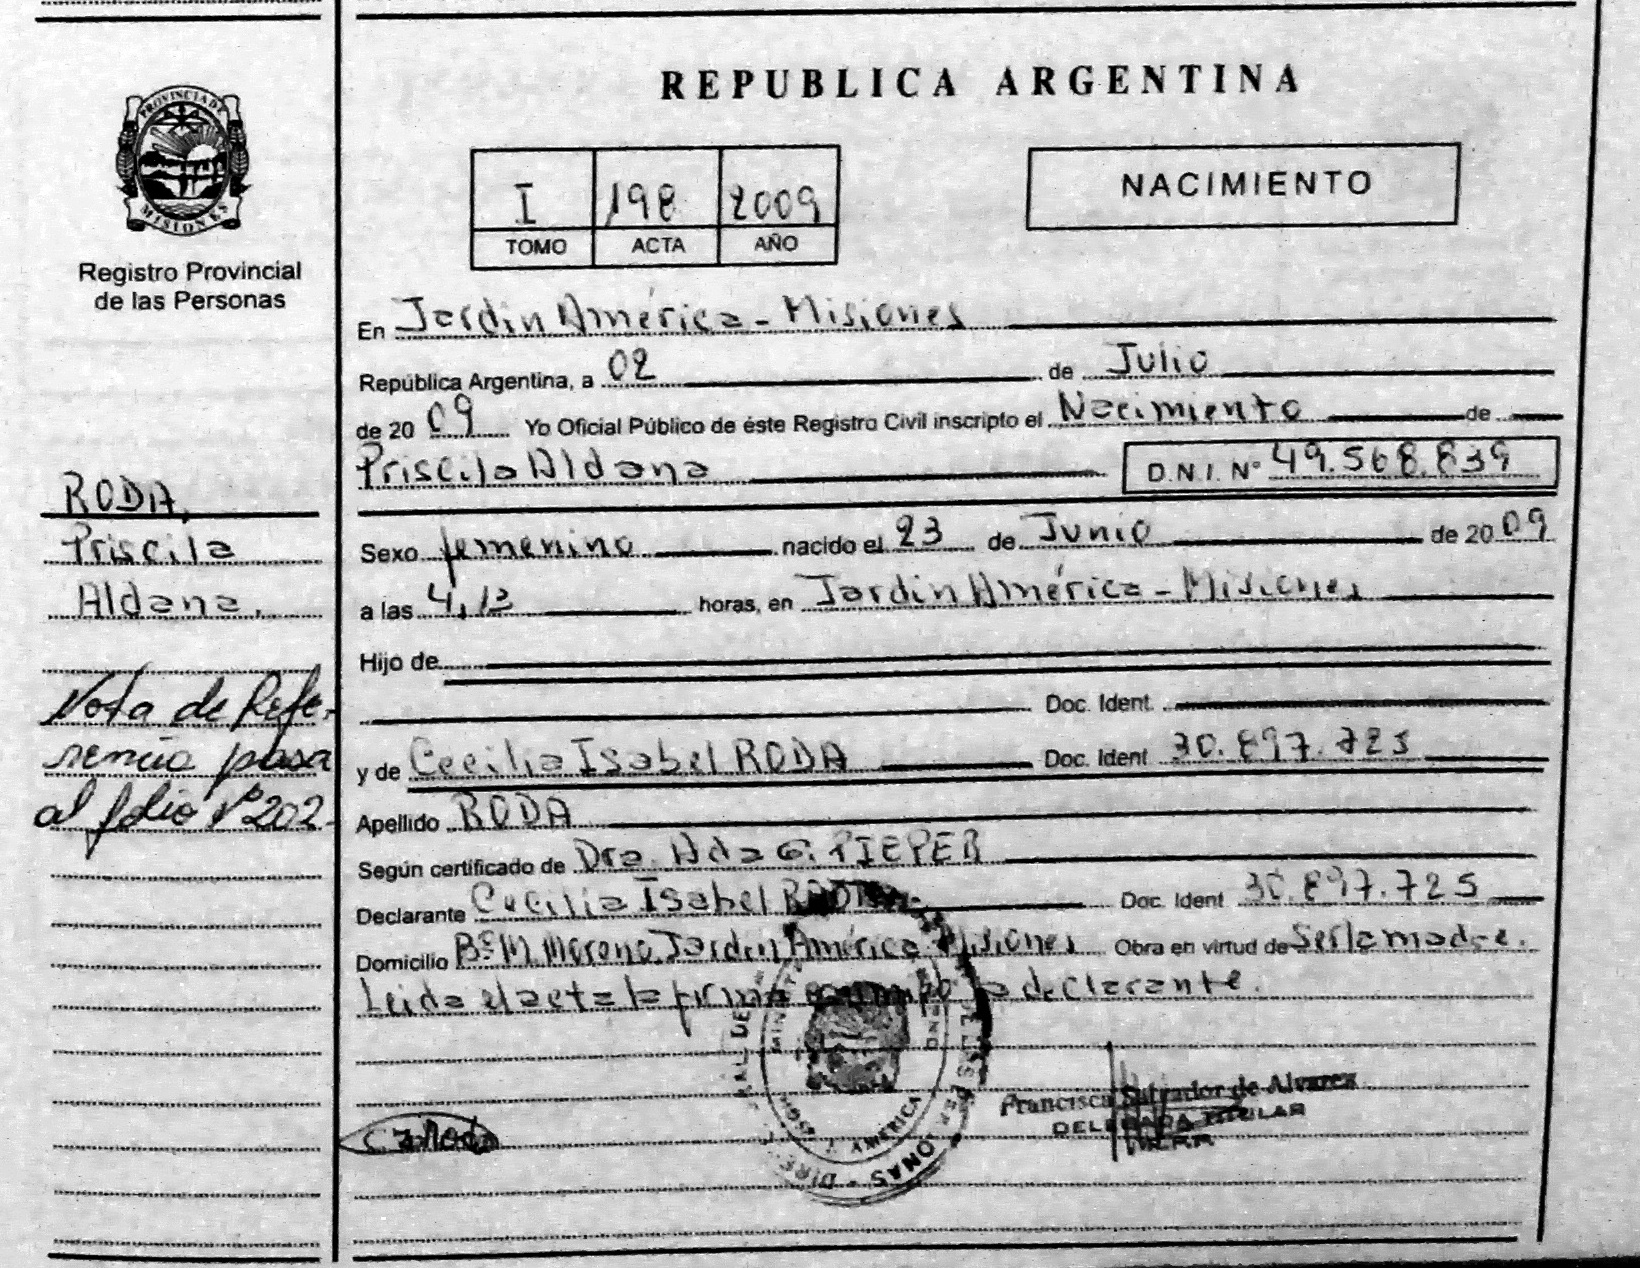 REPUBLICA ARGENTINA
PROVINCIA DE
MISIONES
Registro Provincial
de las Personas
I 198 2009
TOMO ACTA AÑO
NACIMIENTO
En Jardin América - Misiones
República Argentina, a 02 de Julio
de 20 09 Yo Oficial Público de éste Registro Civil inscripto el Nacimiento de
Priscila Aldana D.N.I. Nº 49.568.839
RODA,
Priscila
Aldana.
Sexo femenino nacido el 23 de Junio de 20 09
a las 4,13 horas, en Jardin América - Misiones
Hijo de
Doc. Ident.
Nota de Refe-
rencia pasa
al folio Nº 202
y de Cecilia Isabel RODA Doc. Ident 30.897.725
Apellido RODA
Según certificado de Dra. Ada G. PIEPER
Declarante Cecilia Isabel RODA Doc. Ident 30.897.725
Domicilio Bº M. Moreno. Jardin América - Misiones Obra en virtud de Ser la madre.
Leida el acta la firma conmigo la declarante.
AMERICA
Francisca Salvador de Alvarez
DELEGADA TITULAR
C I Roda